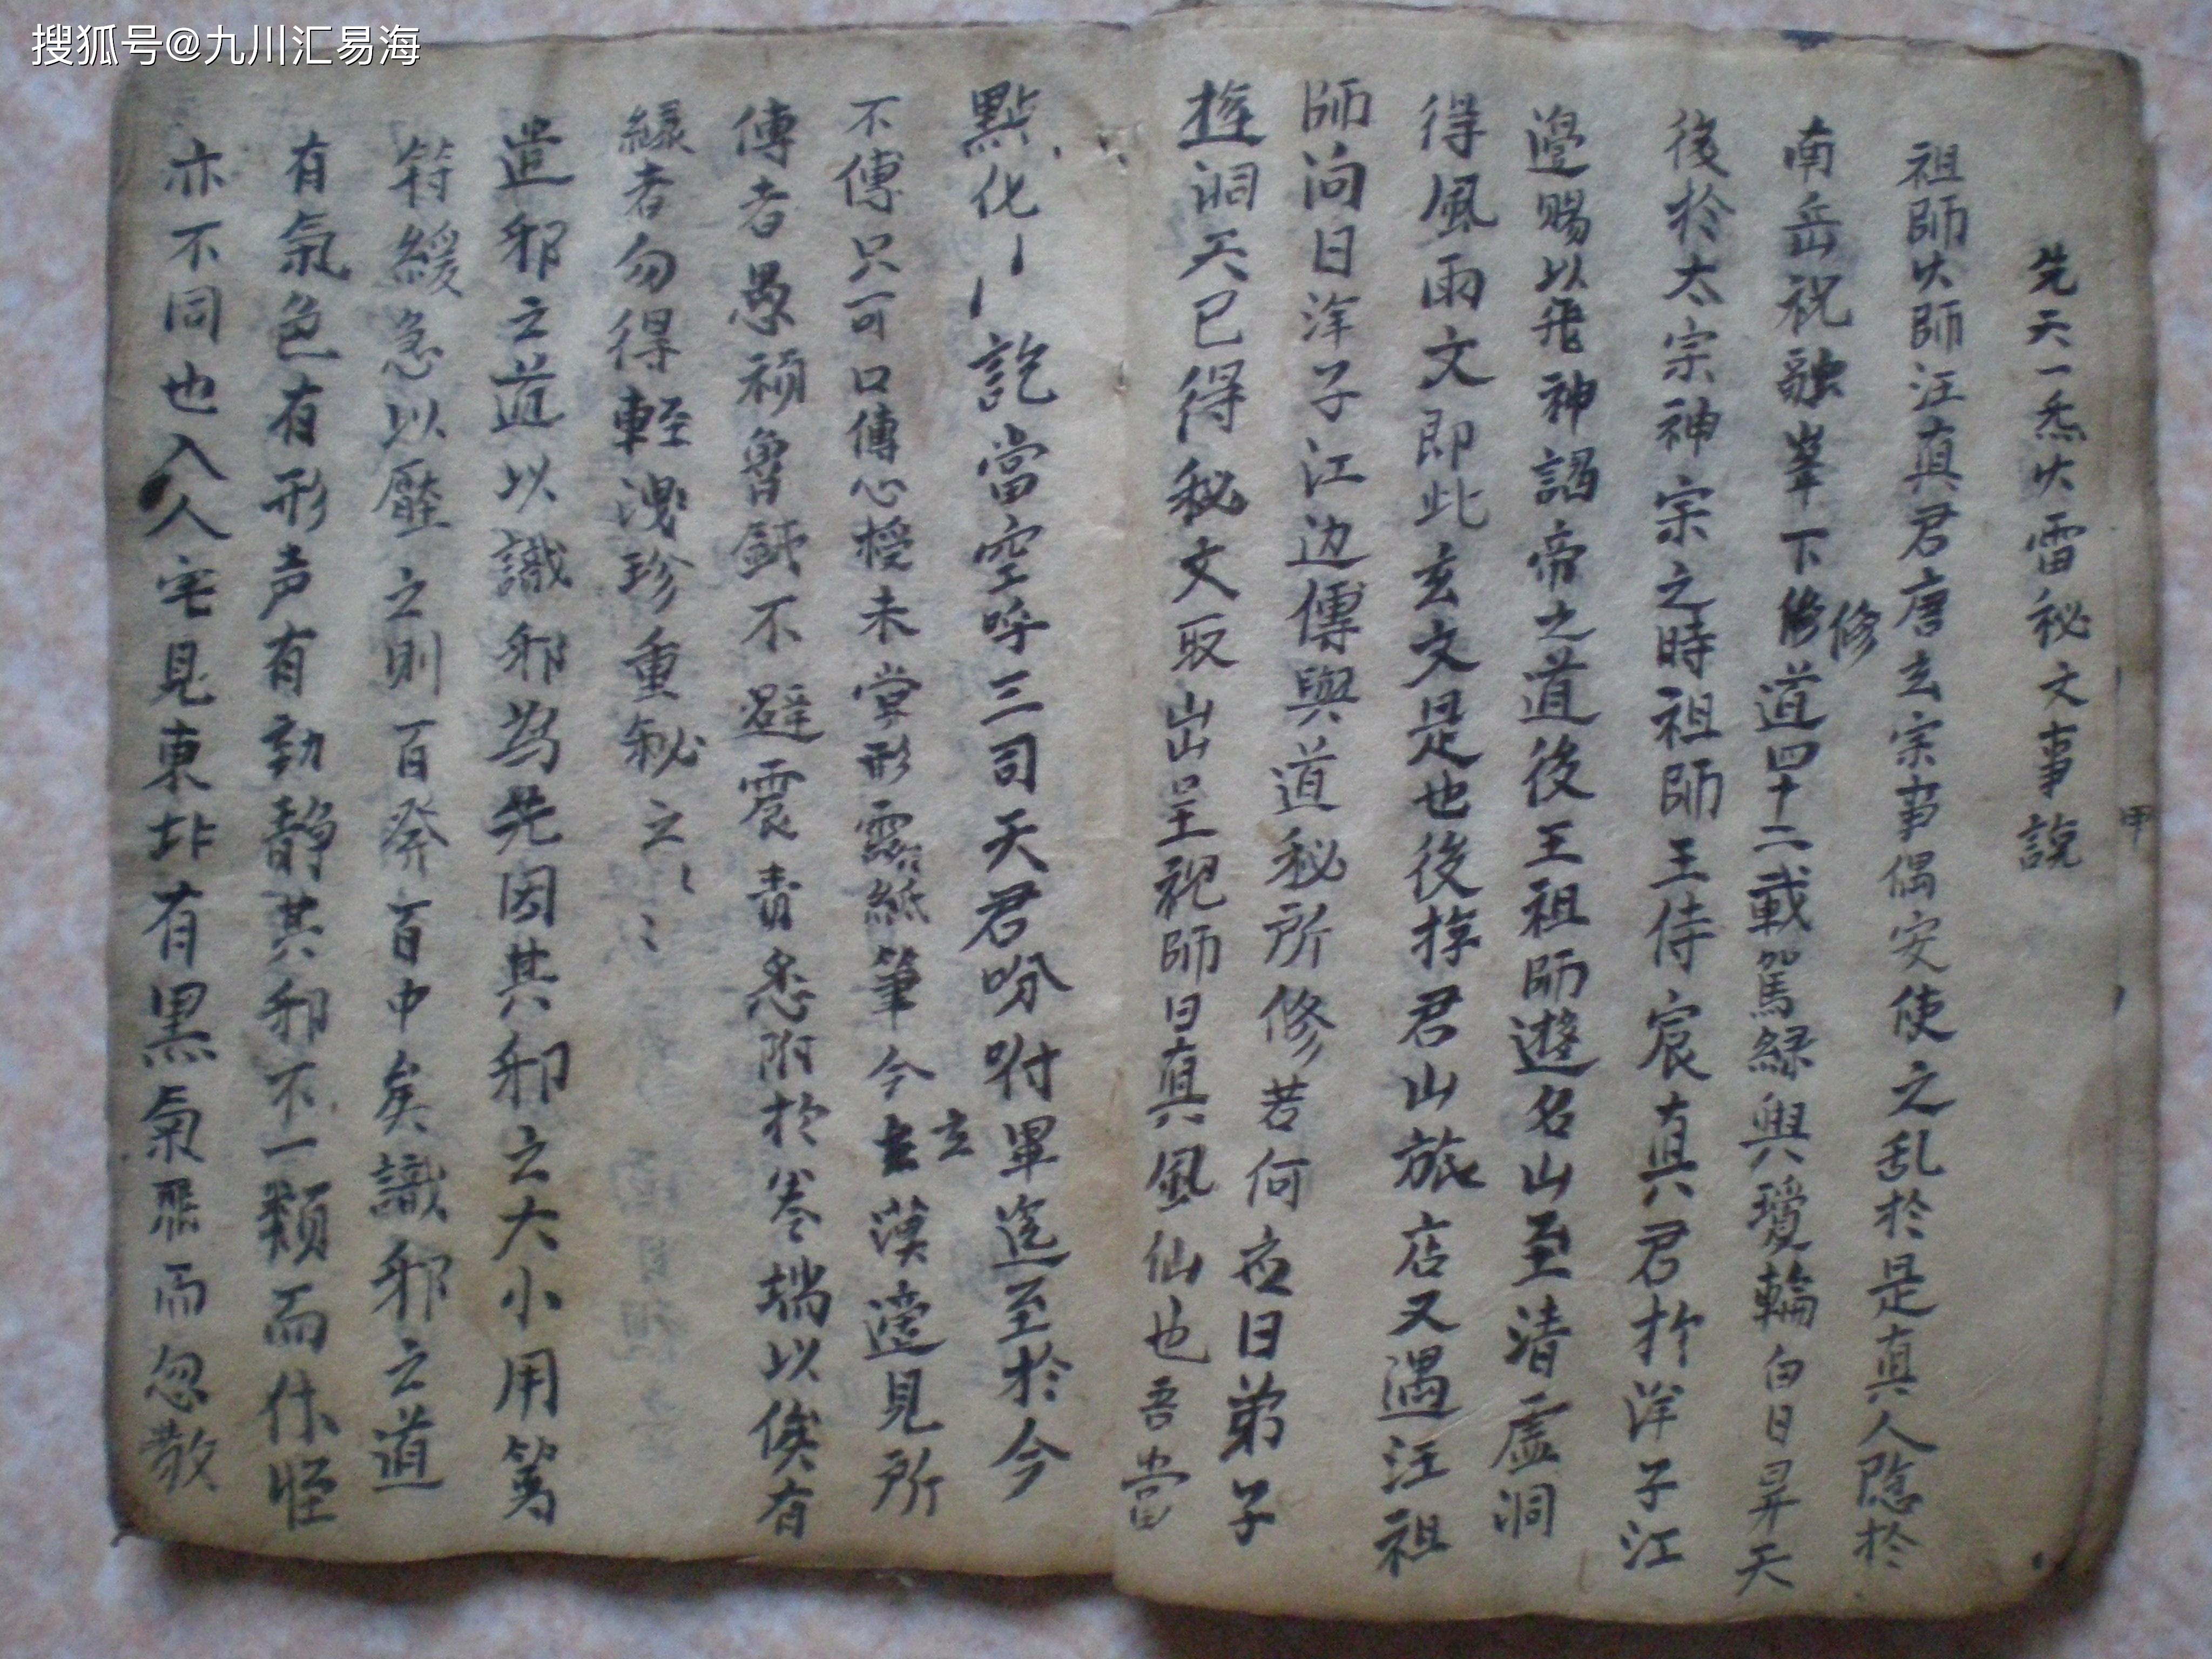 搜狐号@九川汇易海
先天一炁火雷祕文事說
祖師火師汪真君唐玄宗事偶安使之乱於是真人隐於
南岳祝融峯下修修道四十二載駕緑輿瓊輪白日昇天
後於太宗神宗之時祖師王侍宸真君於洋子江
邉賜以飛神謁帝之道後王祖師遊名山至清虚洞
得風雨文即此玄文是也後游君山旅店又遇汪祖
師问日洋子江边傳與道秘所修若何应日弟子
遊洞天已得秘文取出呈祝師日真風仙也吾當
點化訖當空呼三司天君吩咐畢迄至於今
不傳只可口傳心授未嘗形露紙筆今玄漠邉見所
傳者愚頑魯鈍不避震責悉附於卷端以俟有
緣者勿得軽洩珍重秘之
遣邪之道以識邪為先因其邪之大小用篆
符緩急以壓之則百発百中矣識邪之道
有氣色有形声有動静其邪不一類而作怪
亦不同也入人宅見東北有黒氣而忽散
甲